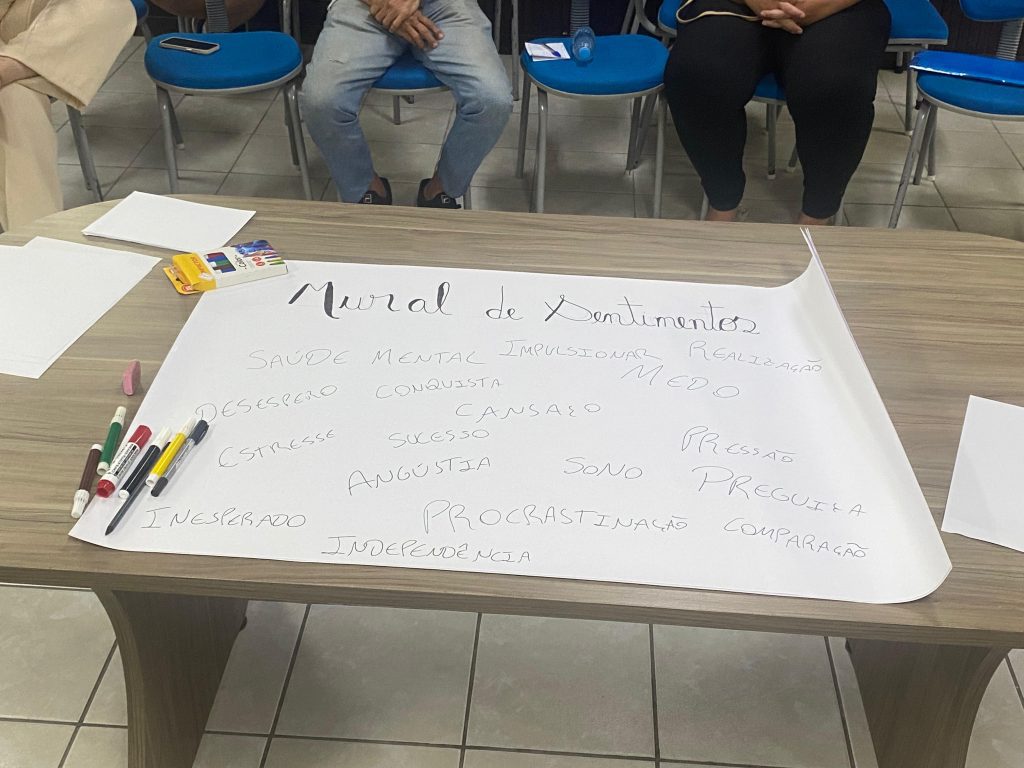 Mural de Sentimentos
SAÚDE MENTAL IMPULSIONAR REALIZAÇÃO
DESESPERO CONQUISTA MEDO
CANSAÇO
ESTRESSE SUCESSO PRESSÃO
ANGÚSTIA SONO PREGUIÇA
INESPERADO PROCRASTINAÇÃO COMPARAÇÃO
INDEPENDÊNCIA